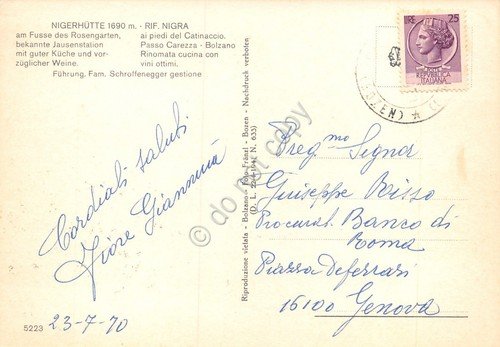 NIGERHÜTTE 1690 m. - RIF. NIGRA
am Fusse des Rosengarten,
bekannte Jausenstation
mit guter Küche und vor-
züglicher Weine.
ai piedi del Catinaccio.
Passo Carezza - Bolzano
Rinomata cucina con
vini ottimi.
Führung. Fam. Schroffenegger gestione
25
REPUBBLICA
ITALIANA
Cordiali saluti
Fiore Giannina
5223
23-7-70
Riproduzione vietata - Bolzano - Foto Fränzl - Bozen - Nachdruck verboten
do not copy
Preg.mo Signor
Giuseppe Risso
Procurat. Banco di
Roma
Piazza Deferrari
16100/ Genova